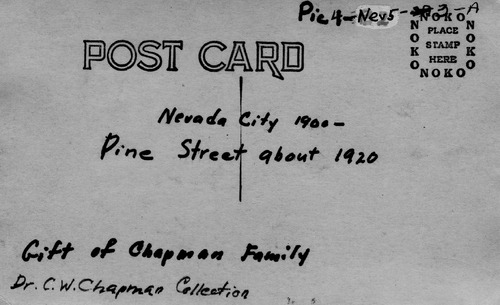 Pic 4-Nev5- 3-A
NOKO
NOKO PLACE NOKO
STAMP
HERE
NOKO
POST CARD
Nevada City 1900-
Pine Street about 1920
Gift of Chapman Family
Dr. C.W. Chapman Collection